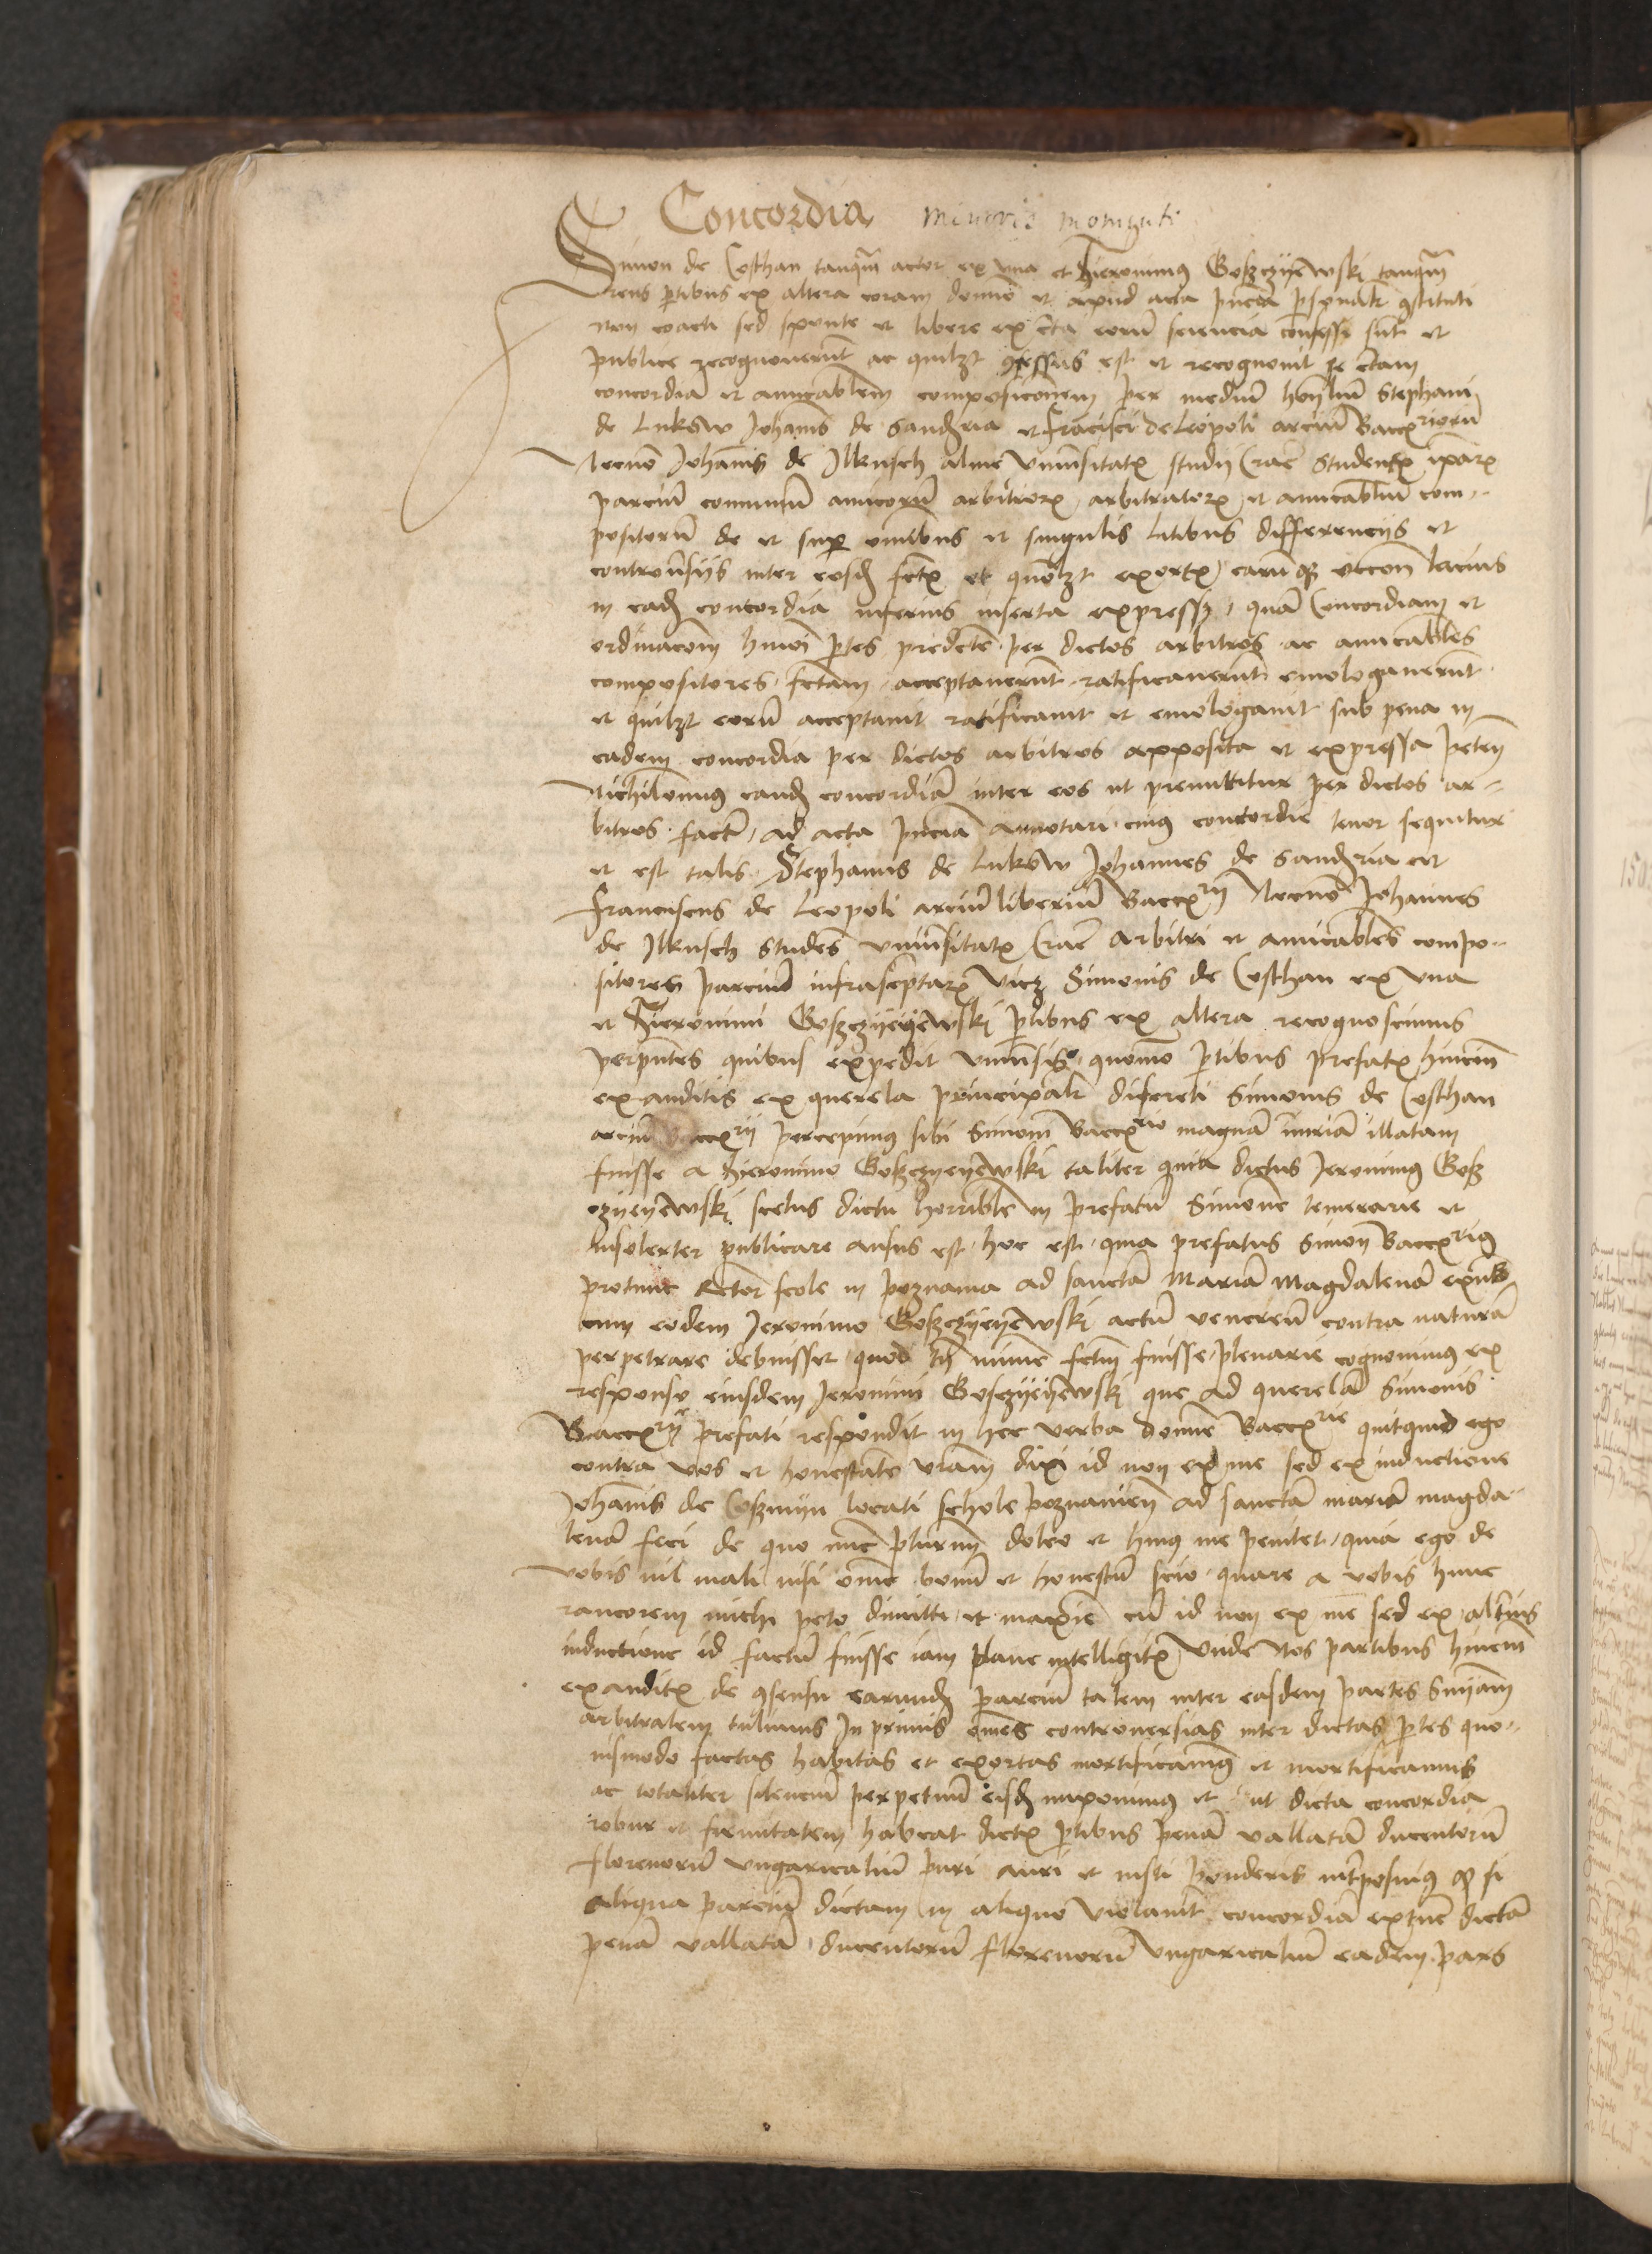 Concordia
Simon de Costhan tanqm actor ex una et Hieronimus Goszczyewski tanqm
reus ptibus ex altera coram domino et apud acta pncia psonalr 9stituti
non coacti sed sponte et libere ex cta eorum sciencia confessi sut et
publice recognoverut ac quilzt 9fessus est et recognovit se ctam
concordia et amicablem composiconem per mediu honlium Stephani
de Lukow Johanis de Sandzria et Francisci de Leopoli arcium Baccrioru
Necno Johanis de Ilkusch alme Univsitatx studij Crac Studentx ipsarx
parcium comuniu amicoru arbitrorx arbitratorx et amicabliu com-
positoru de et sup omibus et singulis litibus differencijs et
controvsijs inter eosd fctx et quolzt exortx earumqz occon lacius
in ead concordia inferius inserta expressz, qua Concordiam et
ordinacom hmoi ptes predcte per dictos arbitros ac amicabiles
compositores fctam acceptaverut ratificaverut emologaverut
et quilzt eoru acceptavit ratificavit et emologavit sub pena in
eadem concordia per dictos arbitros apposita et expressa peten
Nichilominus eand concordia inter eos ut premittitur per dictos ar-
bitros facta, ad acta pncia annotari cuius concordie tenor sequitur
et est talis Stephanus de Lukow Johannes de Sandzria et
Franciscus de Leopoli arcium liberiu Baccrij Necno Johannes
de Ilkusch Studes Univsitatx Crac Arbitri et amicabiles compo-
sitores parcium infrascptarx vicz Simonis de Costhan ex una
et Hieronimi Goszczyeyewski ptibus ex altera recognoscimus
perpntes quibus expedit univsis quomo ptibus prefatx hincin
exauditis ex querela principali discreti Simonis de Costhan
arcium Baccrij percepimus sibi Simoni Baccrio magna iniuria illatam
fuisse a Hieronimo Goszczyeyewski taliter quia dictus Jeronimus Gosz
czyeyewski scelus dictu horrible in prefatu Simone temerarie et
insolenter publicare ausus est hoc est quia prefatus Simon Baccrius
protunc Rctor scole in poznania ad sancta Maria Magdalena exns
cum eodem Jeronimo Goszczyeyewski actu venereu contra natura
perpetrare debuisset quod tn minime fctm fuisse plenarie cognovimus ex
responso eiusdem Jeronimi Gosczyeyewski que ad querela Simonis
Baccrij prefati respondit in hec verba domine Baccrie quitquid ego
contra vos et honestate vram dixi id non ex me sed ex inductione
Johanis de Coszmyn locati schole poznanien ad sancta maria magda-
lena feci de quo nunc plurimu doleo et huius me penitet, quia ego de
vobis nil mali nisi ome bonu et honestu scio quare a vobis hunc
rancorem michi peto dimitti et maxie cu id non ex me sed ex alterius
inductione id factu fuisse iam plane intelligitx Unde Nos partibus hincin
exauditx de 9sensu earund parcium talem inter easdem partes Snyam
arbitralem tulimus In primis omes controversias inter dictas ptes quo-
vismodo factas habitas et exortas mortificamus et mortificamus
ac totaliter silenciu perpetuu eisd imponimus et ut dicta concordia
robur et firmitatem habeat dictx ptibus pena vallata ducentoru
florenoru ungaricaliu puri auri et iusti ponderis intposuimus qz si
aliqua parcium dictam in aliquo violavit concordia extuc dicta
pena vallata ducentoru florenoru ungaricaliu eadem pars